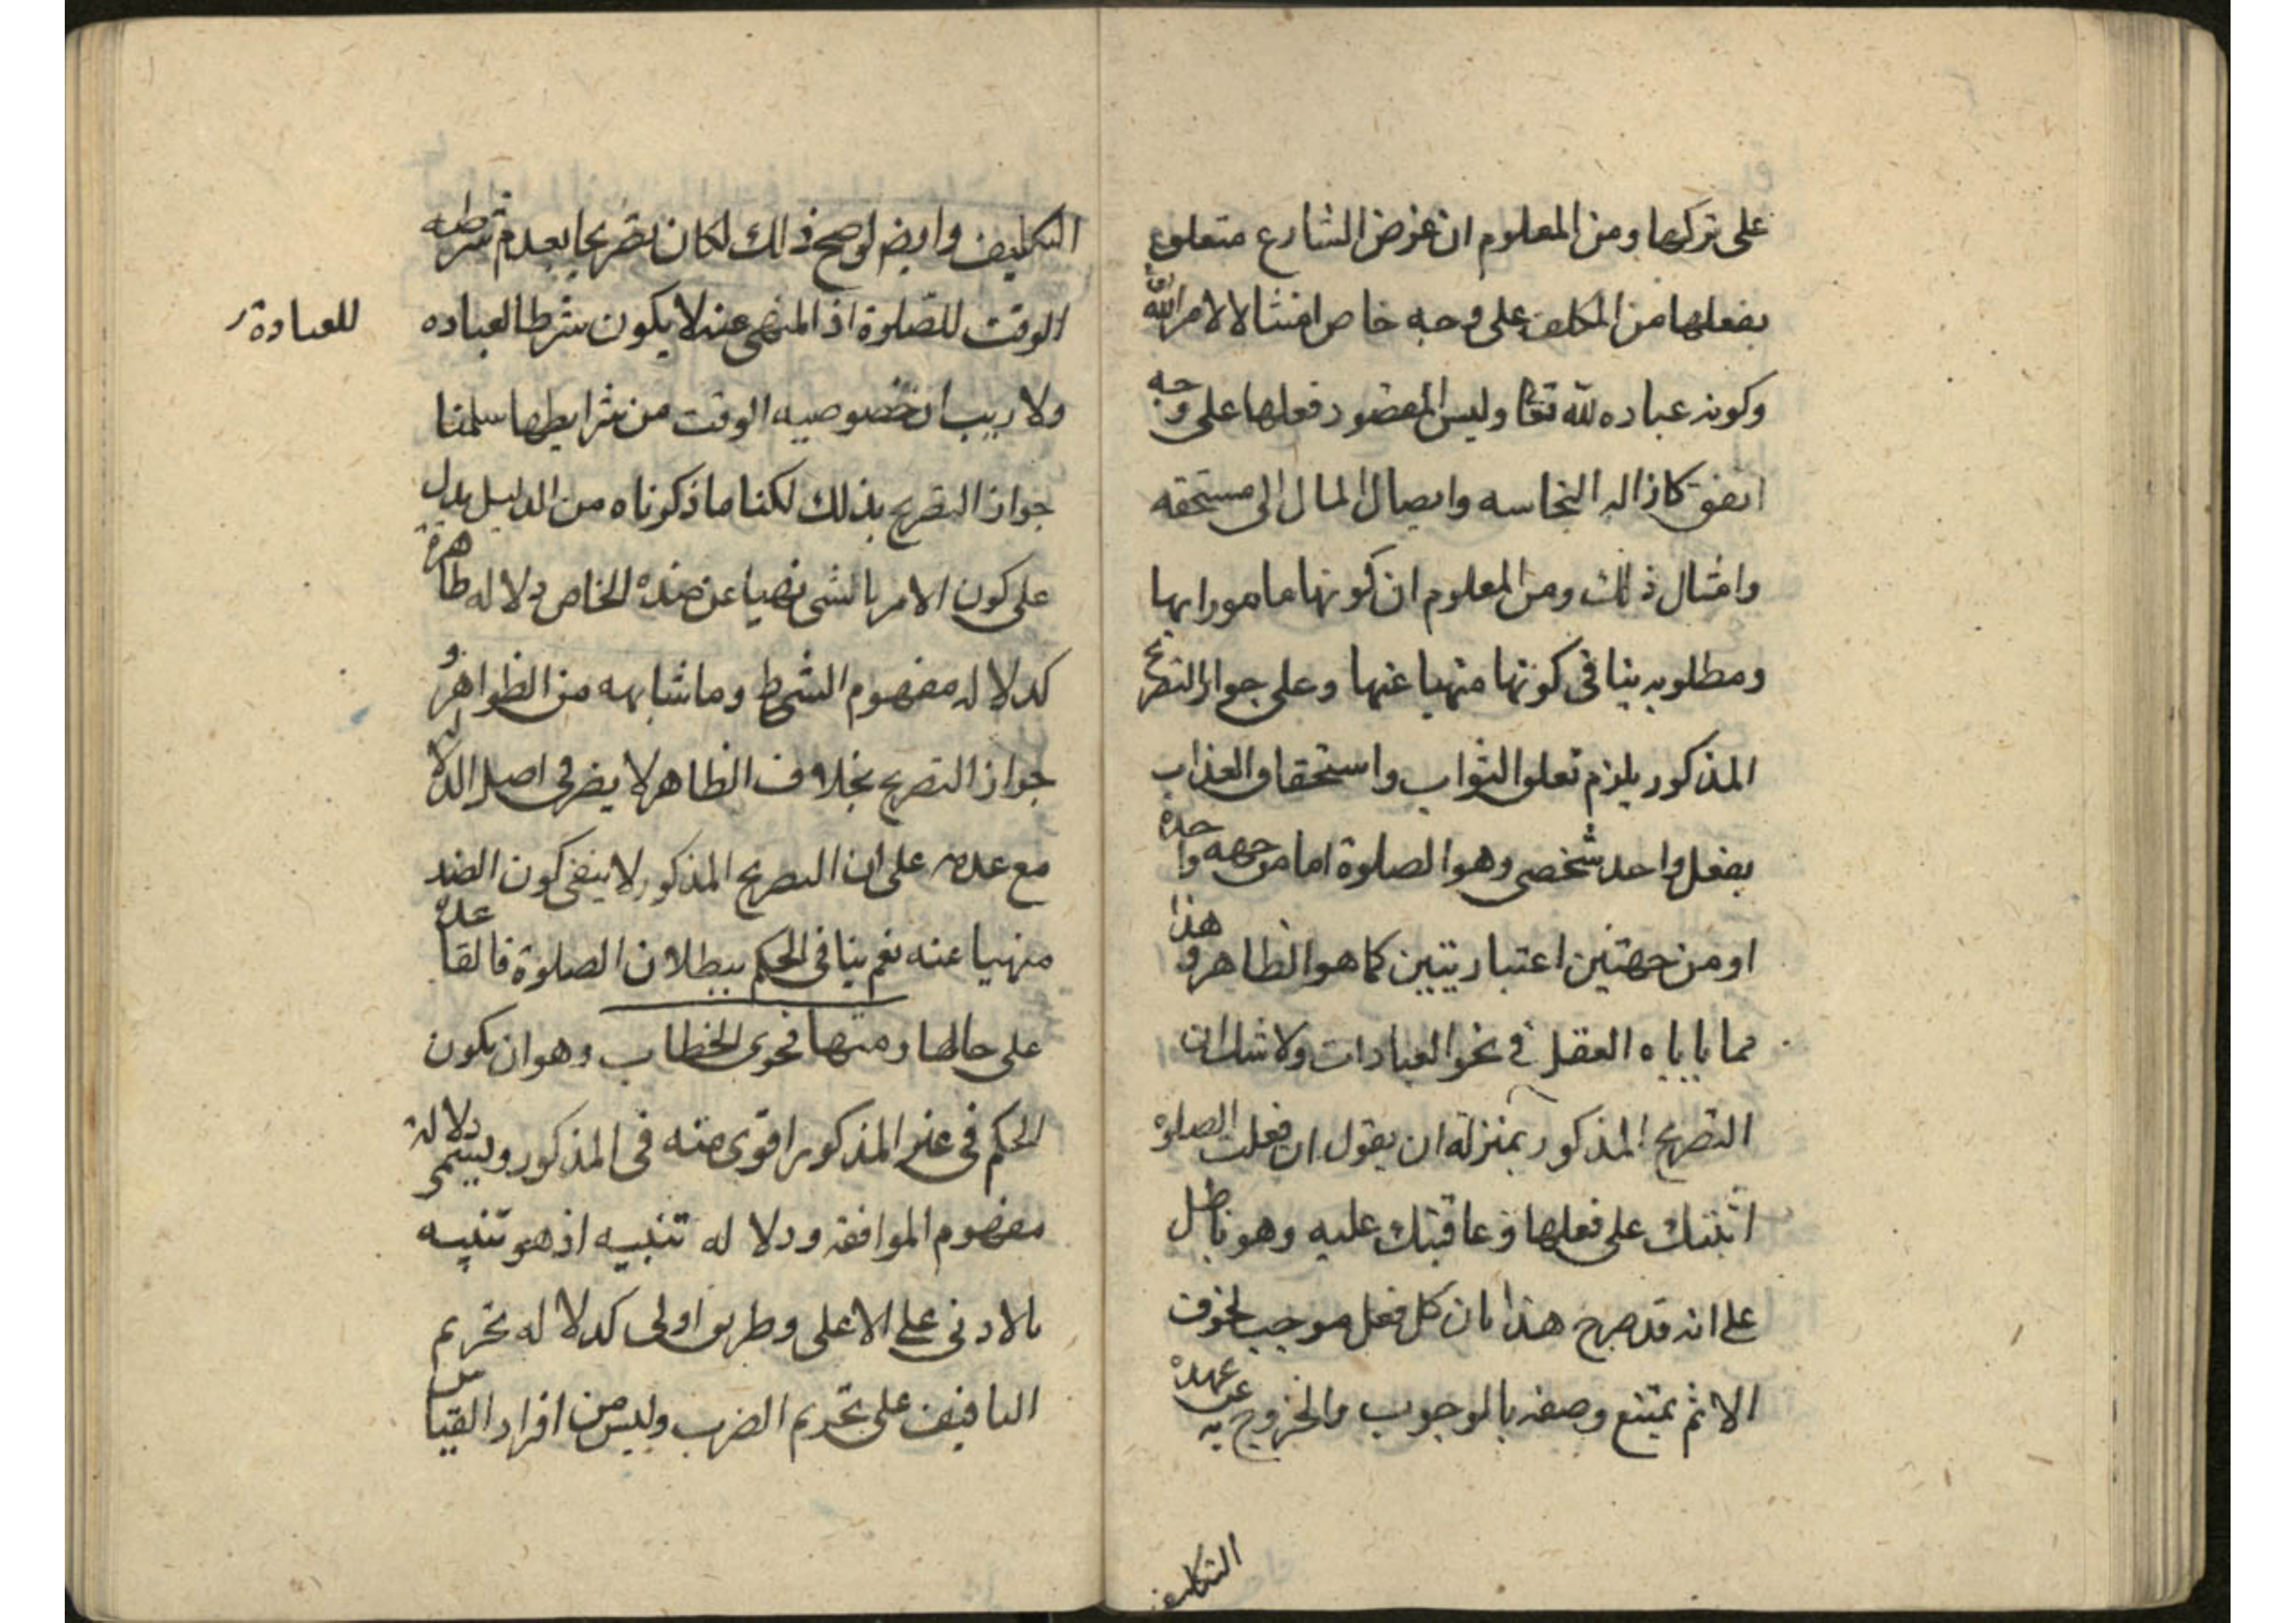 على تركها ومن المعلوم ان غرض الشارع متعلق
بفعلها من المكلف على وجه خاص امتثالا لامر الله
وكونه عباده لله تعالى وليس المقصود فعلها على وجه
اتفق كازاله النجاسه وايصال المال الى مستحقه
وامثال ذلك ومن المعلوم ان كونها مامورا بها
ومطلوبه ينافى كونها منهيا عنها وعلى جواز التصريح
المذكور يلزم تعلق الثواب واستحقاق العذاب
بفعل واحد شخصى وهو الصلوة اما من جهه واحدة
او من جهتين اعتباريتين كما هو الظاهر وهذا
مما ياباه العقل في نحو العبادات ولا شك ان
التصريح المذكور بمنزله ان يقول ان فعلت الصلوة
اثبتك على فعلها وعاقبتك عليه وهو باطل
على انه قد صرح هذا بان كل فعل موجب لخوف
الاثم يمتنع وصفه بالوجوب والخروج به عن عهدة
التكليف
التكليف وايضا لو صح ذلك لكان تصريحا بعدم شرطيه
الوقت للصّلوة اذ المنهى عنه لا يكون شرطا لعباده
للعبادة
ولا ريب ان خصوصيه الوقت من شرايطها سلمنا
جواز التصريح بذلك لكنا ما ذكرناه من الدليل يدل
على كون الامر بالشى نهيا عن ضده الخاص دلاله ظاهرة
كدلاله مفهوم الشرط وما شابهه من الظواهر و
جواز التصريح بخلاف الظاهر لا يضر فى اصل الدلاله
مع عدمه على ان التصريح المذكور لا ينفى كون الضد
منهيا عنه نعم ينافى الحكم ببطلان الصلوة فالقاعدة
على حالها ومنها فحوى الخطاب وهو ان يكون
الحكم فى غير المذكور اقوى منه فى المذكور ويسمى دلالة
مفهوم الموافقه ودلاله تنبيه اذ هو تنبيه
بالادنى على الاعلى وطريق اولى كدلاله تحريم
التافيف على تحريم الضرب وليس من افراد القياس